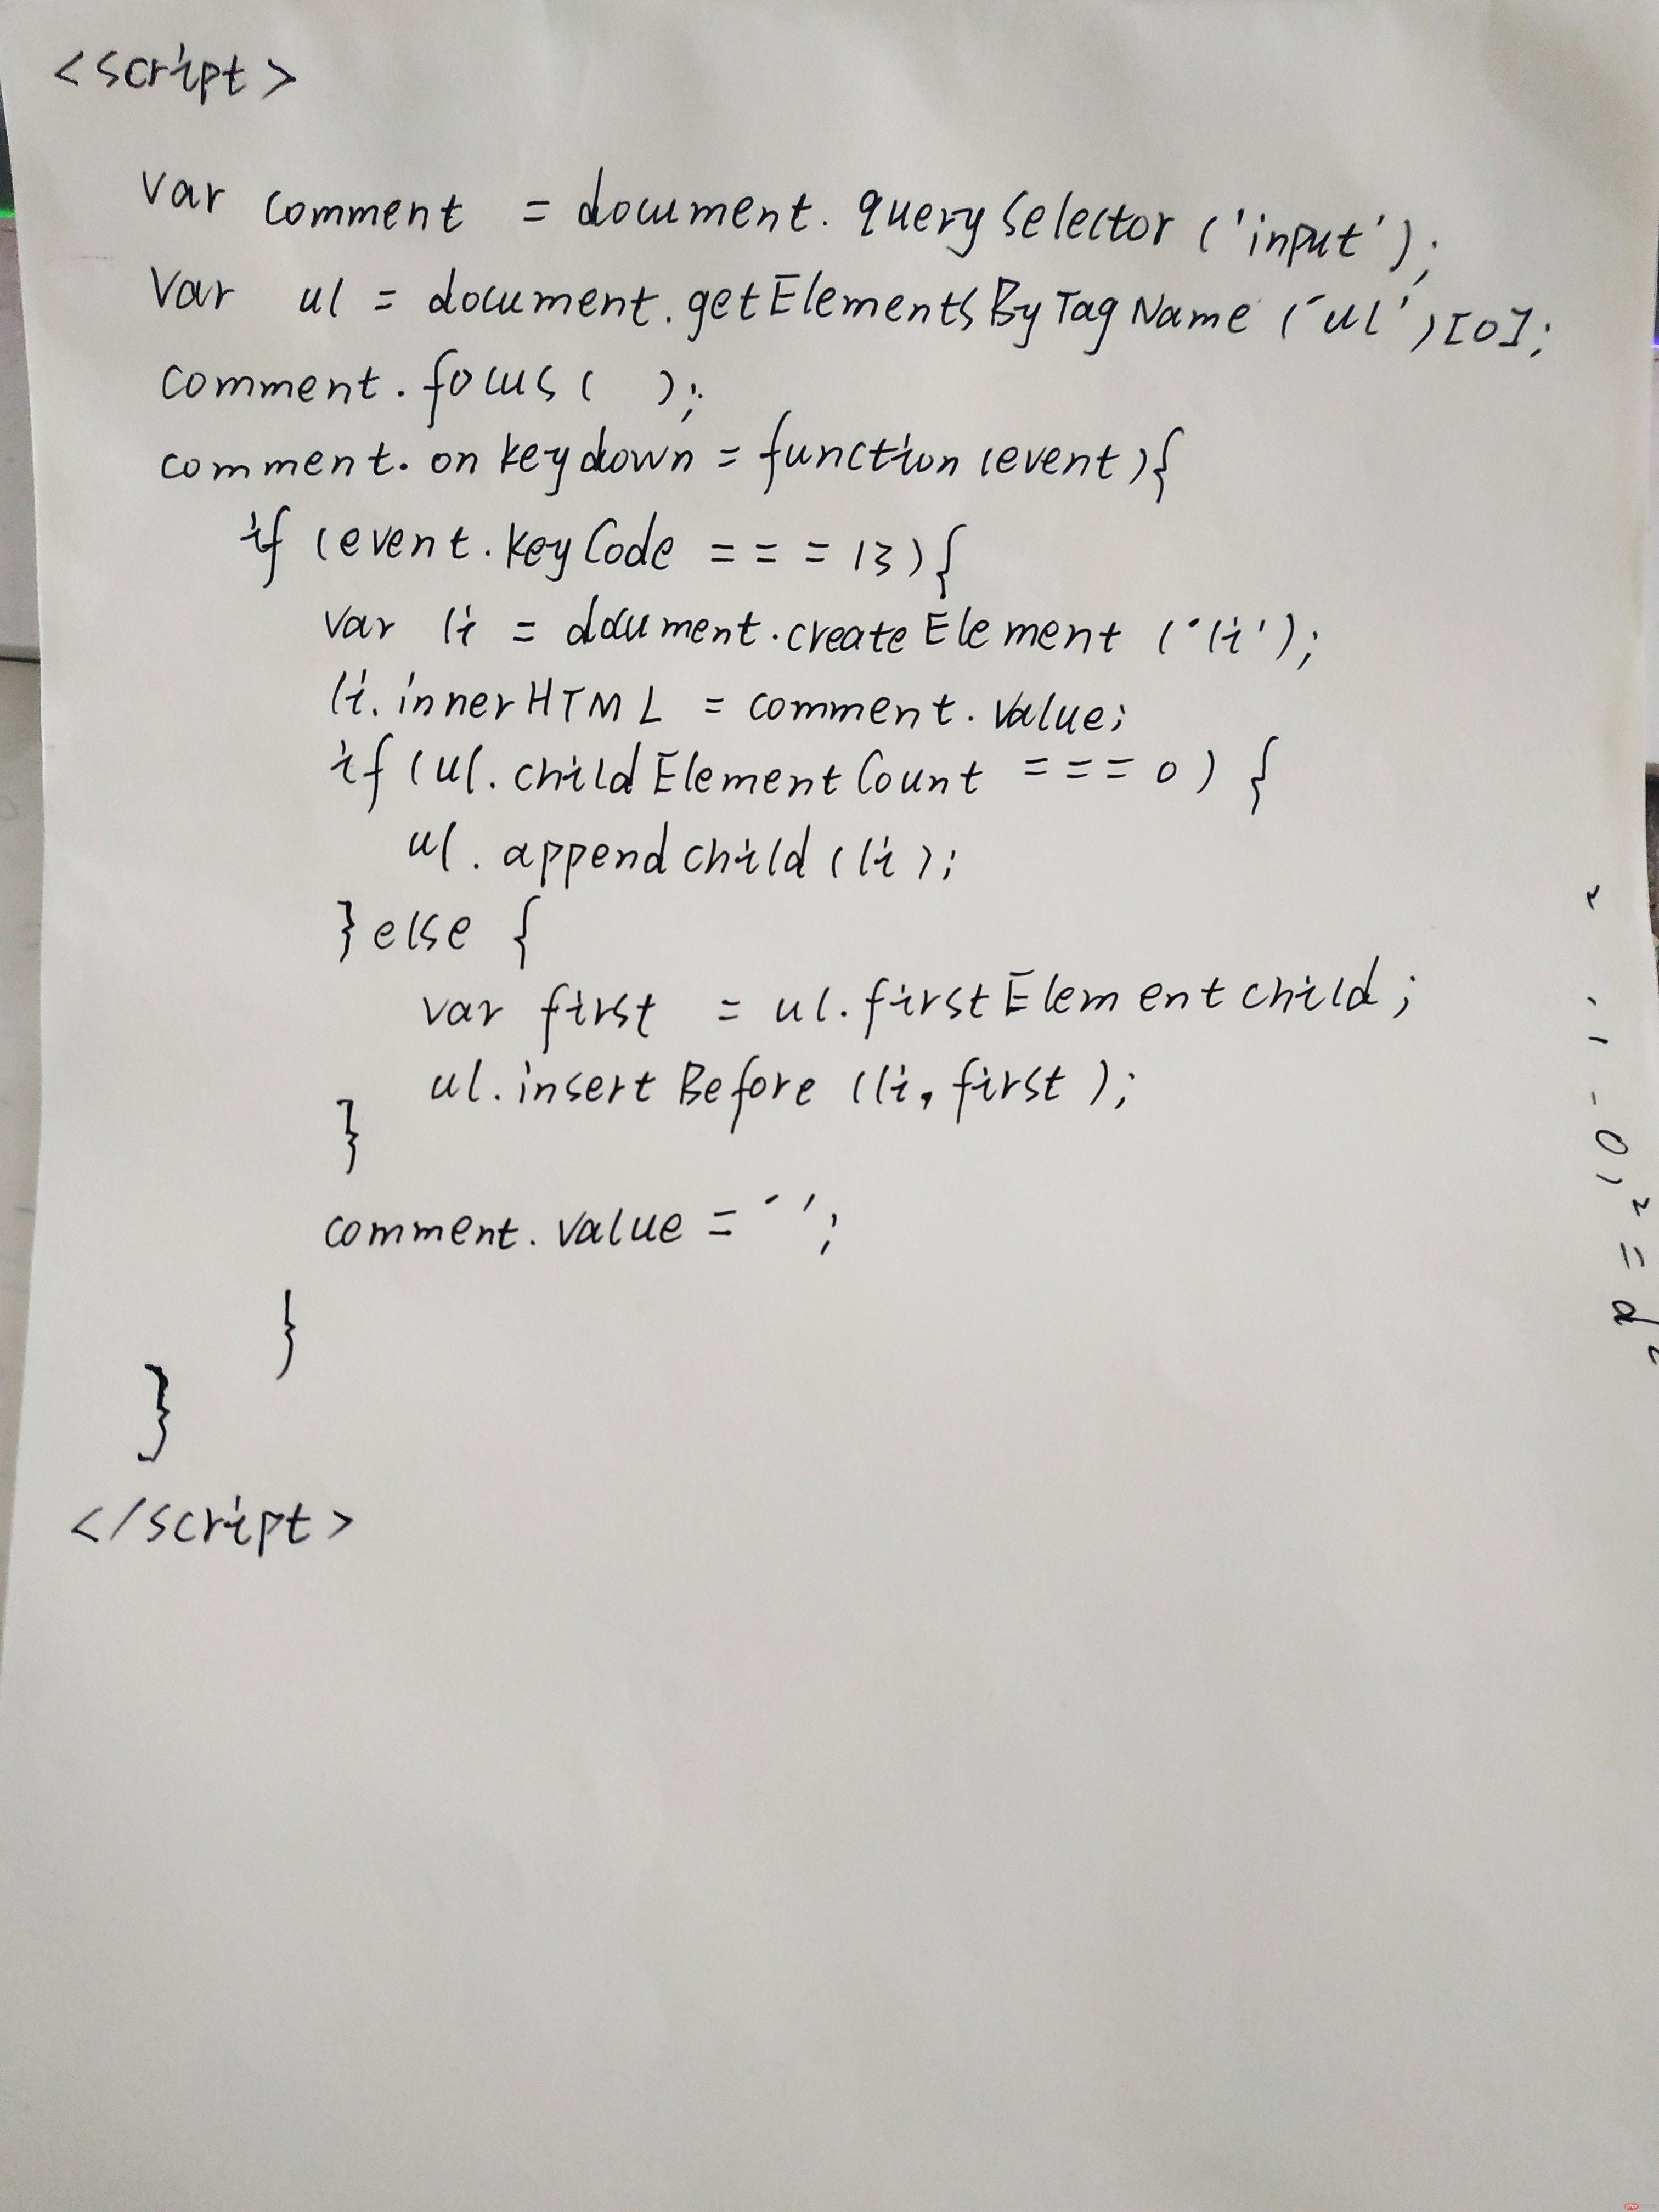 <script>
var comment = document.querySelector('input');
var ul = document.getElementsByTagName('ul')[0];
comment.focus( );
comment.onkeydown = function(event){
if (event.keyCode === 13){
var li = document.createElement('li');
li.innerHTML = comment.value;
if (ul.childElementCount === 0) {
ul.appendchild(li);
} else {
var first = ul.firstElementchild;
ul.insertBefore (li, first );
}
comment.value = '';
}
}
</script>